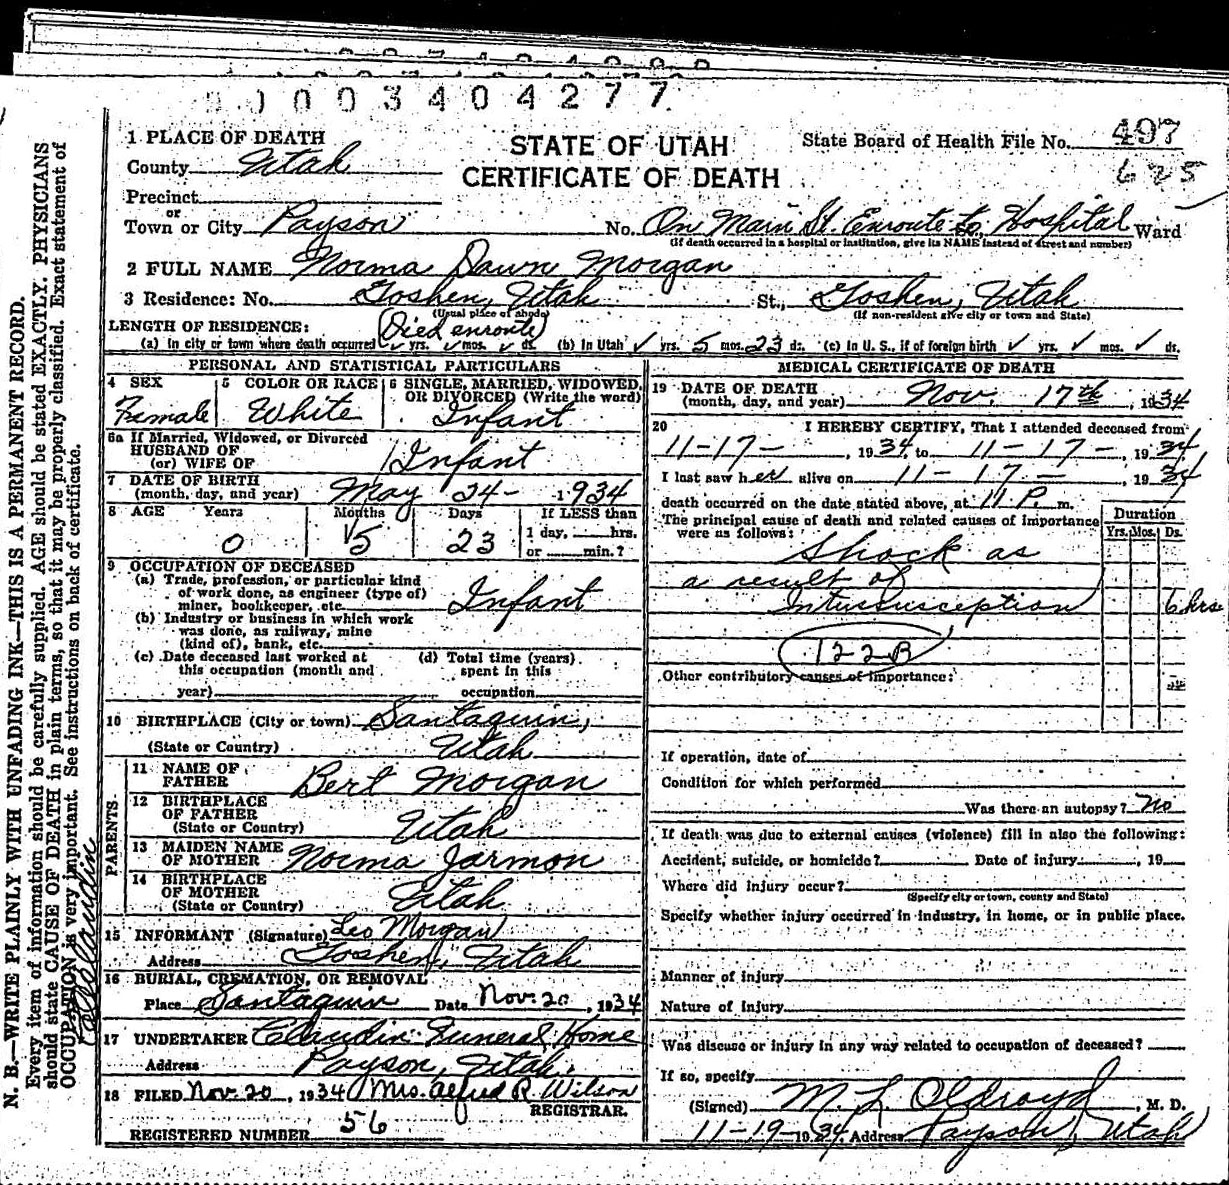 0 0 0 3 4 0 4 2 7 7
1 PLACE OF DEATH
County Utah
Precinct
or
Town or City Payson
STATE OF UTAH
CERTIFICATE OF DEATH
State Board of Health File No. 497
625
No. On Main St. Enroute to Hospital Ward
(If death occurred in a hospital or institution, give its NAME instead of street and number)
2 FULL NAME Norma Dawn Morgan
3 Residence: No. Goshen, Utah St., Goshen, Utah
(Usual place of abode) (If non-resident give city or town and State)
LENGTH OF RESIDENCE: Died enroute
(a) In city or town where death occurred ✓ yrs. ✓ mos. ✓ ds. (b) In Utah ✓ yrs. 5 mos. 23 ds. (c) In U. S., if of foreign birth ✓ yrs. ✓ mos. ✓ ds.
PERSONAL AND STATISTICAL PARTICULARS
4 SEX
Female
5 COLOR OR RACE
White
6 SINGLE, MARRIED, WIDOWED,
OR DIVORCED (Write the word)
Infant
6a If Married, Widowed, or Divorced
HUSBAND OF
(or) WIFE OF Infant
7 DATE OF BIRTH
(month, day, and year) May 24- 1934
8 AGE Years Months Days If LESS than
1 day, hrs.
0 5 23 or min.?
9 OCCUPATION OF DECEASED
(a) Trade, profession, or particular kind
of work done, as engineer (type of)
miner, bookkeeper, etc. Infant
(b) Industry or business in which work
was done, as railway, mine
(kind of), bank, etc.
(c) Date deceased last worked at
this occupation (month and
year)
(d) Total time (years)
spent in this
occupation
10 BIRTHPLACE (City or town) Santaquin,
(State or Country) Utah
PARENTS
11 NAME OF
FATHER Bert Morgan
12 BIRTHPLACE
OF FATHER
(State or Country) Utah
13 MAIDEN NAME
OF MOTHER Norma Jarmon
14 BIRTHPLACE
OF MOTHER
(State or Country) Utah
15 INFORMANT (Signature) Leo Morgan
Address Goshen, Utah
16 BURIAL, CREMATION, OR REMOVAL
Place Santaquin Date Nov. 20, 1934
17 UNDERTAKER Claudin Funeral Home
Address Payson, Utah.
18 FILED Nov. 20, 1934 Mrs. Alfred R. Wilson
REGISTRAR.
REGISTERED NUMBER 56
MEDICAL CERTIFICATE OF DEATH
19 DATE OF DEATH
(month, day, and year) Nov. 17th, 1934
20 I HEREBY CERTIFY, That I attended deceased from
11-17-, 1934, to 11-17-, 1934
I last saw her alive on 11-17-, 1934
death occurred on the date stated above, at 11 P. m.
The principal cause of death and related causes of importance
were as follows:
Duration
Yrs. Mos. Ds.
Shock as
a result of
Intussusception 6 hrs
122B
Other contributory causes of importance:
If operation, date of
Condition for which performed
Was there an autopsy? No
If death was due to external causes (violence) fill in also the following:
Accident, suicide, or homicide? Date of injury , 19
Where did injury occur?
(Specify city or town, county and State)
Specify whether injury occurred in industry, in home, or in public place.
Manner of injury
Nature of injury
Was disease or injury in any way related to occupation of deceased?
If so, specify
(Signed) M. L. Oldroyd, M. D.
11-19-1934, Address Payson, Utah
N. B.—WRITE PLAINLY WITH UNFADING INK—THIS IS A PERMANENT RECORD.
Every item of information should be carefully supplied. AGE should be stated EXACTLY. PHYSICIANS
should state CAUSE OF DEATH in plain terms, so that it may be properly classified. Exact statement of
OCCUPATION is very important. See instructions on back of certificate.